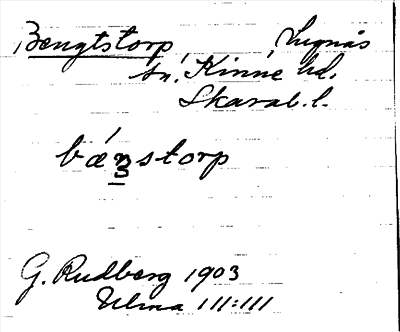 Bengtstorp, Lugnås
sn. Kinne hd.
Skarab. l.
bæʒstorp
G. Rudberg 1903
Ulma 111:111